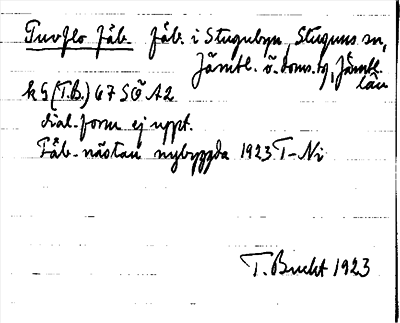 Tuvflo fäb. fäb. i Stugubyn, Stuguns sn,
Jämtl. ö. doms. tg, Jämtl.
län
kg (T.B.) 67 SÖ A2
dial. form ej uppt.
Fäb. nästan nybyggda 1923 T-Ni
T. Bucht 1923